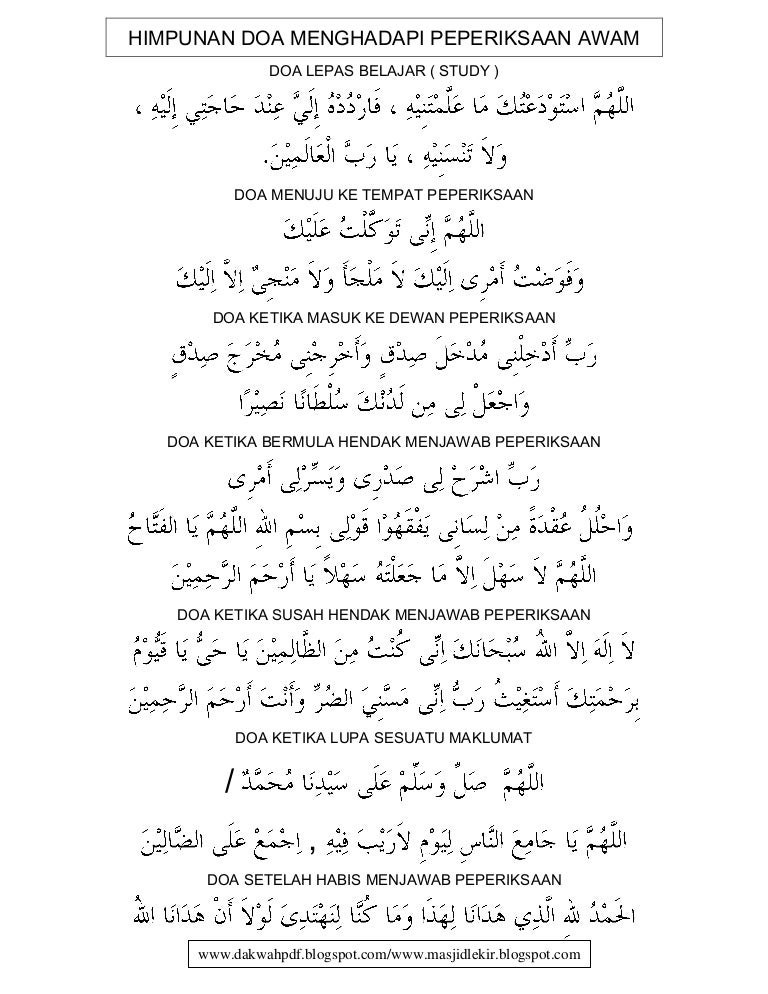 HIMPUNAN DOA MENGHADAPI PEPERIKSAAN AWAM
DOA LEPAS BELAJAR ( STUDY )
اللَّهُمَّ اسْتَوْدَعْتُكَ مَا عَلَّمْتَنِيْهِ ، فَارْدُدْهُ إِلَيَّ عِنْدَ حَاجَتِي إِلَيْهِ ،
وَلاَ تَنْسَنِيْهِ ، يَا رَبَّ الْعَالَمِيْنَ.
DOA MENUJU KE TEMPAT PEPERIKSAAN
اللَّهُمَّ إِنِّى تَوَكَّلْتُ عَلَيْكَ
وَفَوَضْتُ أَمْرِى اِلَيْكَ لاَ مَلْجَأَ وَلاَ مَنْجِىٌ اِلاَّ اِلَيْكَ
DOA KETIKA MASUK KE DEWAN PEPERIKSAAN
رَبِّ أَدْخِلْنِى مُدْخَلَ صِدْقٍ وَأَخْرِجْنِى مُخْرَجَ صِدْقٍ
وَاجْعَلْ لِى مِن لَدُنْكَ سُلْطَانًا نَصِيْرًا
DOA KETIKA BERMULA HENDAK MENJAWAB PEPERIKSAAN
رَبِّ اشْرَحْ لِى صَدْرِى وَيَسِّرْلِى أَمْرِى
وَاحْلُلُ عُقْدَةً مِنْ لِسَانِى يَفْقَهُوْا قَوْلِى بِسْمِ اللهِ اللَّهُمَّ يَا الفَتَّاحُ
اللَّهُمَّ لاَ سَهْلَ اِلاَّ مَا جَعَلْتَهُ سَهْلاً يَا أَرْحَمَ الرَّحِمِيْنَ
DOA KETIKA SUSAH HENDAK MENJAWAB PEPERIKSAAN
لاَ اِلَهَ اِلاَّ اللهُ سُبْحَانَكَ اِنِّى كُنْتُ مِنَ الظَّالِمِيْنَ يَا حَىُّ يَا قَيُّوْمُ
بِرَحْمَتِكَ أَسْتَغِيْثُ رَبُّ اِنِّى مَسَّنِيَ الضُرِّ وَأَنْتَ أَرْحَمَ الرَّحِمِيْنَ
DOA KETIKA LUPA SESUATU MAKLUMAT
اللَّهُمَّ صَلِّ وَسَلِّمْ عَلَى سَيْدِنَا مُحَمَّدٌ /
اللَّهُمَّ يَا جَامِعَ النَّاسِ لِيَوْمِ لاَرَيْبَ فِيْهِ , اِجْمَعْ عَلَى الضَّالِيْنَ
DOA SETELAH HABIS MENJAWAB PEPERIKSAAN
الحَمْدُ للهِ الَّذِي هَدَانَا لِهَذَا وَمَا كُنَّا لِنَهْتَدِىَ لَوْلاَ أَنْ هَدَانَا اللهُ
www.dakwahpdf.blogspot.com/www.masjidlekir.blogspot.com